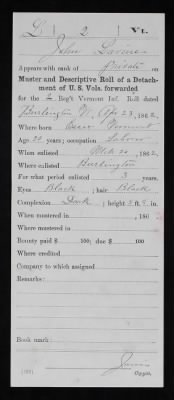 L | 2 | Vt.
John
Appears with rank of Private on
Muster and Descriptive Roll of a Detach-
ment of U. S. Vols. forwarded
for the 2 Reg't Vermont Inf. Roll dated
Burlington Vt, Apr 23, 1862.
Where born Essex Vermont
Age 22 years; occupation Laborer
When enlisted Mch 20, 1862.
Where enlisted Burlington
For what period enlisted 3 years.
Eyes Black; hair Black
Complexion Dark; height 5 ft. in.
When mustered in , 186
Where mustered in
Bounty paid $ 100; due $ 100
Where credited
Company to which assigned
Remarks:
Book mark:
Copyist.